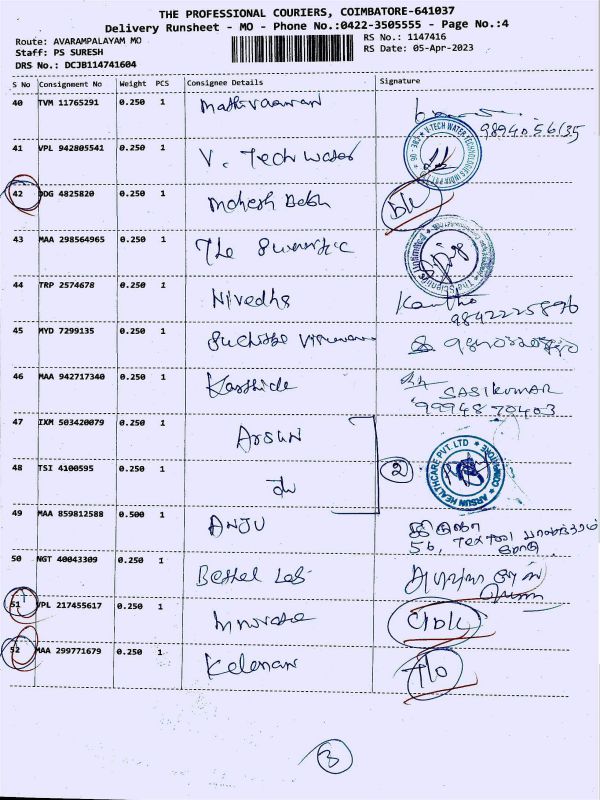 THE PROFESSIONAL COURIERS, COIMBATORE-641037
Delivery Runsheet - MO - Phone No.:0422-3505555 - Page No.:4
Route: AVARAMPALAYAM MO
RS No.: 1147416
Staff: PS SURESH
RS Date: 05-Apr-2023
DRS No.: DCJB114741604
S No Consignment No Weight PCS Consignee Details Signature
40 TVM 11765291 0.250 1 Mathivaanan
9894056135
41 VPL 942805541 0.250 1 V. Tech Water
V-TECH WATER TECHNOLOGIES INDIA PVT LTD
42 DDG 4825820 0.250 1 Mahesh Babu DL
43 MAA 298564965 0.250 1 The
44 TRP 2574678 0.250 1 Nivedha
9842225896
45 MYD 7299135 0.250 1
46 MAA 942717340 0.250 1 Karthick SASIKUMAR
9994870403
47 IXM 503420079 0.250 1 ARSUN
48 TSI 4100595 0.250 1 2
ARSUN HEALTHCARE PVT. LTD COIMBATORE
49 MAA 859812588 0.500 1 ANJU
50 NGT 40043309 0.250 1
51 VPL 217455617 0.250 1 C/DL
52 MAA 299771679 0.250 1 T/O
3